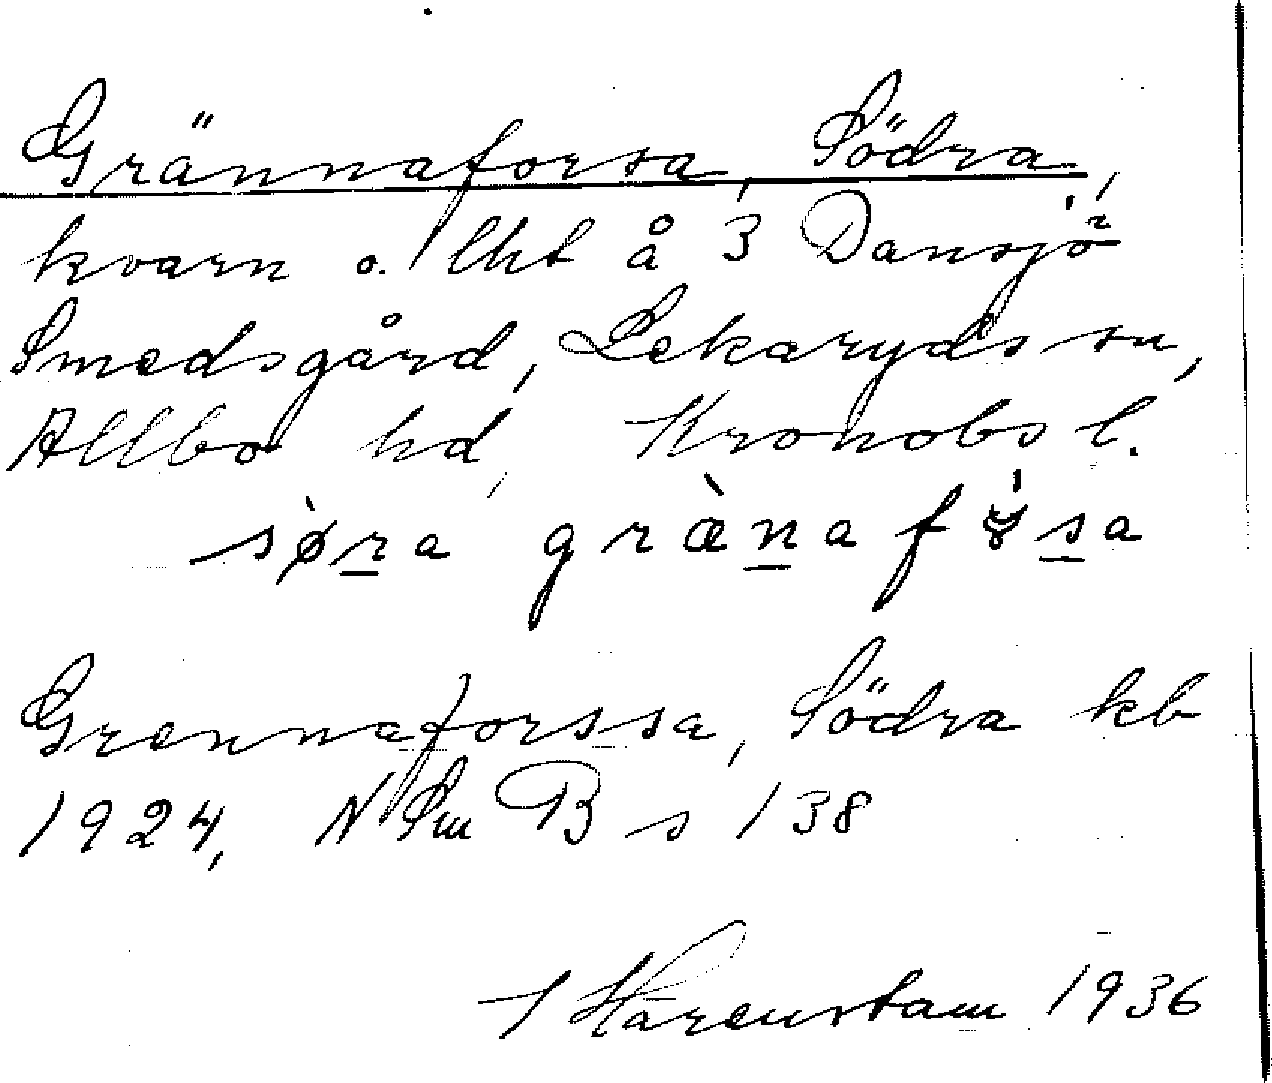 Grännaforsa, Södra,
kvarn o. lht å 3 Dansjö
Smedsgård, Lekaryds sn,
Allbo hd, Kronobs l.
sø̀ra græ̀nafɤ́sa
Grennaforssa, Södra kb
1924, N Sm B s 138
I Härenstam 1936